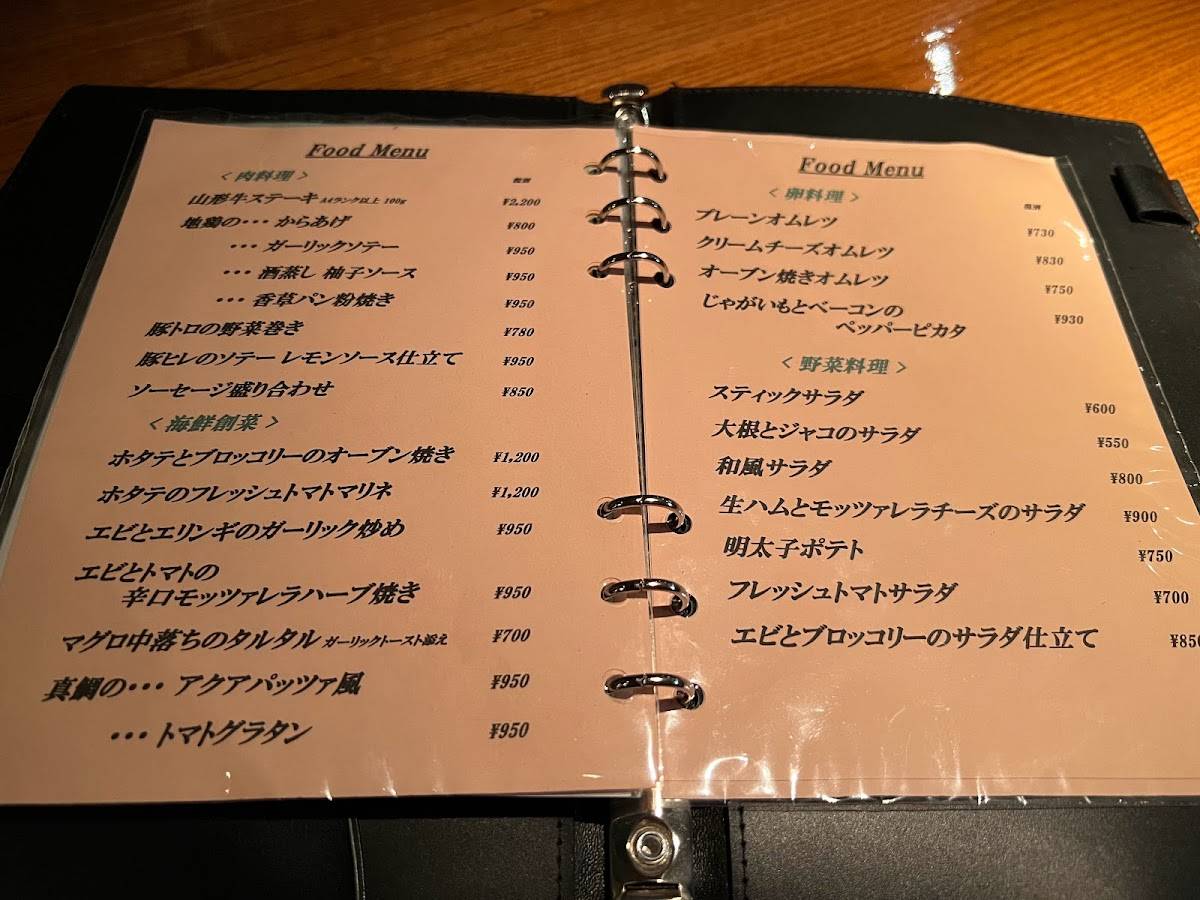 Food Menu
< 肉料理 >
税別
山形牛ステーキ A4ランク以上 100g ¥2,200
地鶏の・・・ からあげ ¥800
・・・ ガーリックソテー ¥950
・・・ 酒蒸し 柚子ソース ¥950
・・・ 香草パン粉焼き ¥950
豚トロの野菜巻き ¥780
豚ヒレのソテー レモンソース仕立て ¥950
ソーセージ盛り合わせ ¥850
< 海鮮創菜 >
ホタテとブロッコリーのオーブン焼き ¥1,200
ホタテのフレッシュトマトマリネ ¥1,200
エビとエリンギのガーリック炒め ¥950
エビとトマトの
辛口モッツァレラハーブ焼き ¥950
マグロ中落ちのタルタル ガーリックトースト添え ¥700
真鯛の・・・ アクアパッツァ風 ¥950
・・・ トマトグラタン ¥950
Food Menu
< 卵料理 >
税別
プレーンオムレツ ¥730
クリームチーズオムレツ ¥830
オーブン焼きオムレツ ¥750
じゃがいもとベーコンの
ペッパーピカタ ¥930
< 野菜料理 >
スティックサラダ ¥600
大根とジャコのサラダ ¥550
和風サラダ ¥800
生ハムとモッツァレラチーズのサラダ ¥900
明太子ポテト ¥750
フレッシュトマトサラダ ¥700
エビとブロッコリーのサラダ仕立て ¥850